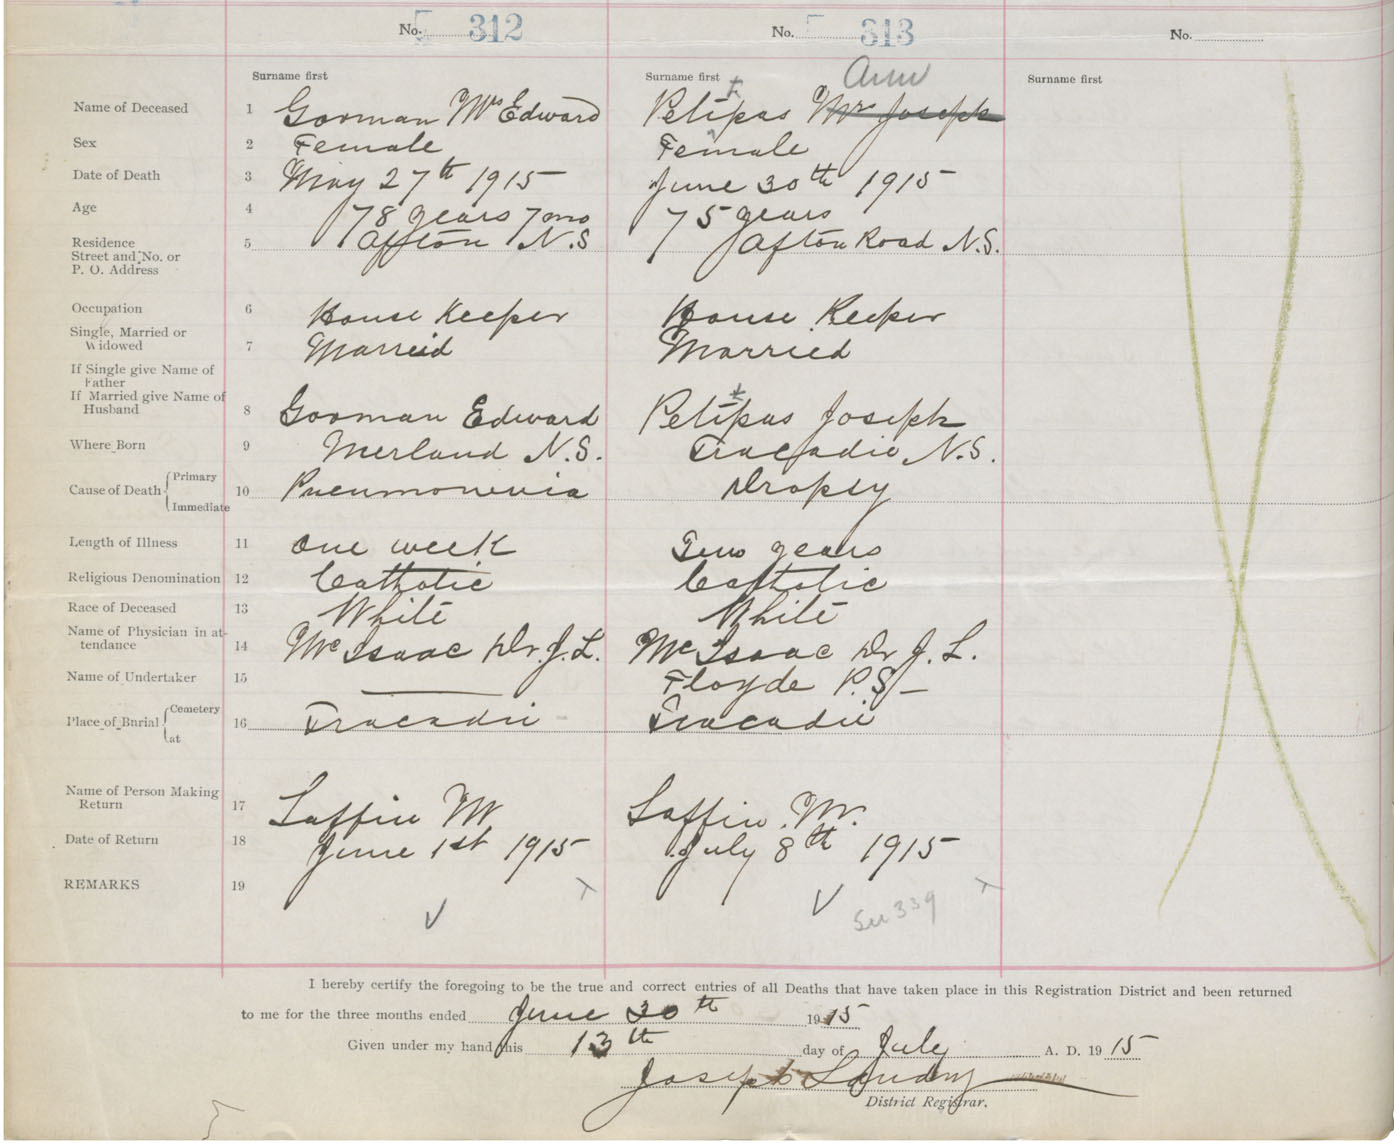 No. 312 No. 313 No.
Surname first Surname first Ann Surname first
Name of Deceased 1 Gorman Mrs Edward Petipas Mrs Joseph
Sex 2 Female Female
Date of Death 3 May 27th 1915 June 30th 1915
Age 4 78 years 7 mo 75 years
Residence 5 Afton N.S Afton Road N.S.
Street and No. or
P. O. Address
Occupation 6 House Keeper House Keeper
Single, Married or
Widowed 7 Marreid Married
If Single give Name of
Father
If Married give Name of
Husband 8 Gorman Edward Petipas Joseph
Where Born 9 Merland N.S. Tracadie N.S.
Primary
Cause of Death 10 Pneumonenia Dropsy
Immediate
Length of Illness 11 One week Two years
Religious Denomination 12 Catholic Catholic
Race of Deceased 13 White White
Name of Physician in at-
tendance 14 McIsaac Dr. J. L. McIsaac Dr J. L.
Name of Undertaker 15 — Floyde P.S —
Cemetery
Place of Burial 16 Tracadie Tracadie
at
Name of Person Making
Return 17 Laffin M Laffin. M.
Date of Return 18 June 1st 1915 July 8th 1915
REMARKS 19
339
I hereby certify the foregoing to be the true and correct entries of all Deaths that have taken place in this Registration District and been returned
to me for the three months ended June 30th 1915
Given under my hand this 13th day of July A. D. 1915
Joseph Landry
District Registrar.